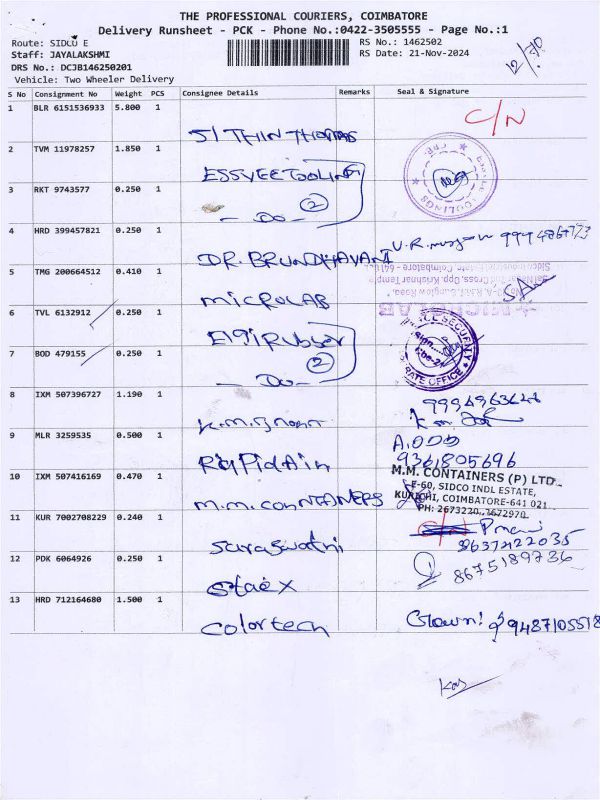 THE PROFESSIONAL COURIERS, COIMBATORE
Delivery Runsheet - PCK - Phone No.:0422-3505555 - Page No.:1
Route: SIDCO E
RS No.: 1462502
Staff: JAYALAKSHMI
RS Date: 21-Nov-2024
DRS No.: DCJB146250201
Vehicle: Two Wheeler Delivery
12/
S No Consignment No Weight PCS Consignee Details Remarks Seal & Signature
1 BLR 6151536933 5.800 1 C/N
THIN THOMAS
2 TVM 11978257 1.850 1 ESSVEE TOOLING
3 RKT 9743577 0.250 1 2
- Do -
4 HRD 399457821 0.250 1 DR. BRUNDHAVANI
5 TMG 200664512 0.410 1
MICROLAB
6 TVL 6132912 0.250 1 Elgi Rubber
7 BOD 479155 0.250 1 2
- Do -
8 IXM 507396727 1.190 1
9 MLR 3259535 0.500 1
9361805696
Rapidain
M.M. CONTAINERS (P) LTD
10 IXM 507416169 0.470 1 E-60, SIDCO INDL ESTATE,
M.M. CONTAINERS KURICHI, COIMBATORE-641 021
PH: 2673220, 2672970
11 KUR 7002708229 0.240 1
Saraswathi 8637422035
12 PDK 6064926 0.250 1 8675189736
Staex
13 HRD 712164680 1.500 1
Colortech 9487105518